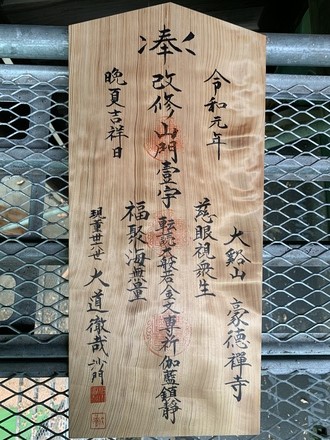 令和元年
大谿山 豪德禪寺
慈眼視衆生
奉 改修山門壹宇 転読大般若全文専祈 伽藍鎮静
福聚海無量
晩夏吉祥日
現董卅一世 大道徹哉 沙門